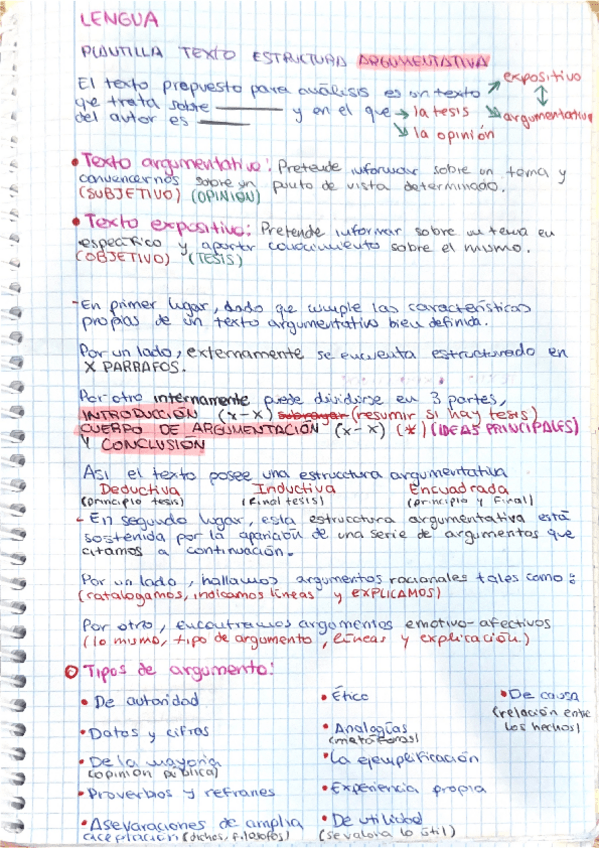 LENGUA
PLANTILLA TEXTO ESTRUCTURA ARGUMENTATIVA
El texto propuesto para análisis es un texto ↗ expositivo
que trata sobre ______ y en el que → la tesis ↕ ↘ argumentativo
del autor es ______ ↘ la opinión
• Texto argumentativo: Pretende informar sobre un tema y
convencernos sobre un punto de vista determinado.
(SUBJETIVO) (OPINIÓN)
• Texto expositivo: Pretende informar sobre un tema en
específico y aportar conocimiento sobre el mismo.
(OBJETIVO) (TESIS)
- En primer lugar, dado que cumple las características
propias de un texto argumentativo bien definida.
Por un lado, externamente se encuentra estructurado en
X PARRAFOS.
Por otro internamente puede dividirse en 3 partes,
INTRODUCCIÓN (x-x) subrayar (resumir si hay tesis)
CUERPO DE ARGUMENTACIÓN (x-x) (*) (IDEAS PRINCIPALES)
Y CONCLUSIÓN
Así el texto posee una estructura argumentativa
Deductiva Inductiva Encuadrada
(principio tesis) (final tesis) (principio y final)
- En segundo lugar, esta estructura argumentativa está
sostenida por la aparición de una serie de argumentos que
citamos a continuación.
Por un lado, hallamos argumentos racionales tales como:
(catalogamos, indicamos líneas y EXPLICAMOS)
Por otro, encontramos argumentos emotivo-afectivos
(lo mismo, tipo de argumento, líneas y explicación.)
Tipos de argumento:
• De autoridad • Ético • De causa
(relación entre
los hechos)
• Datos y cifras • Analogías
(metáforas)
• De la mayoría • La ejemplificación
(opinión pública)
• Proverbios y refranes • Experiencia propia
• Asevaraciones de amplia • De utilidad
aceptación (dichos, filósofos) (se valora lo útil)